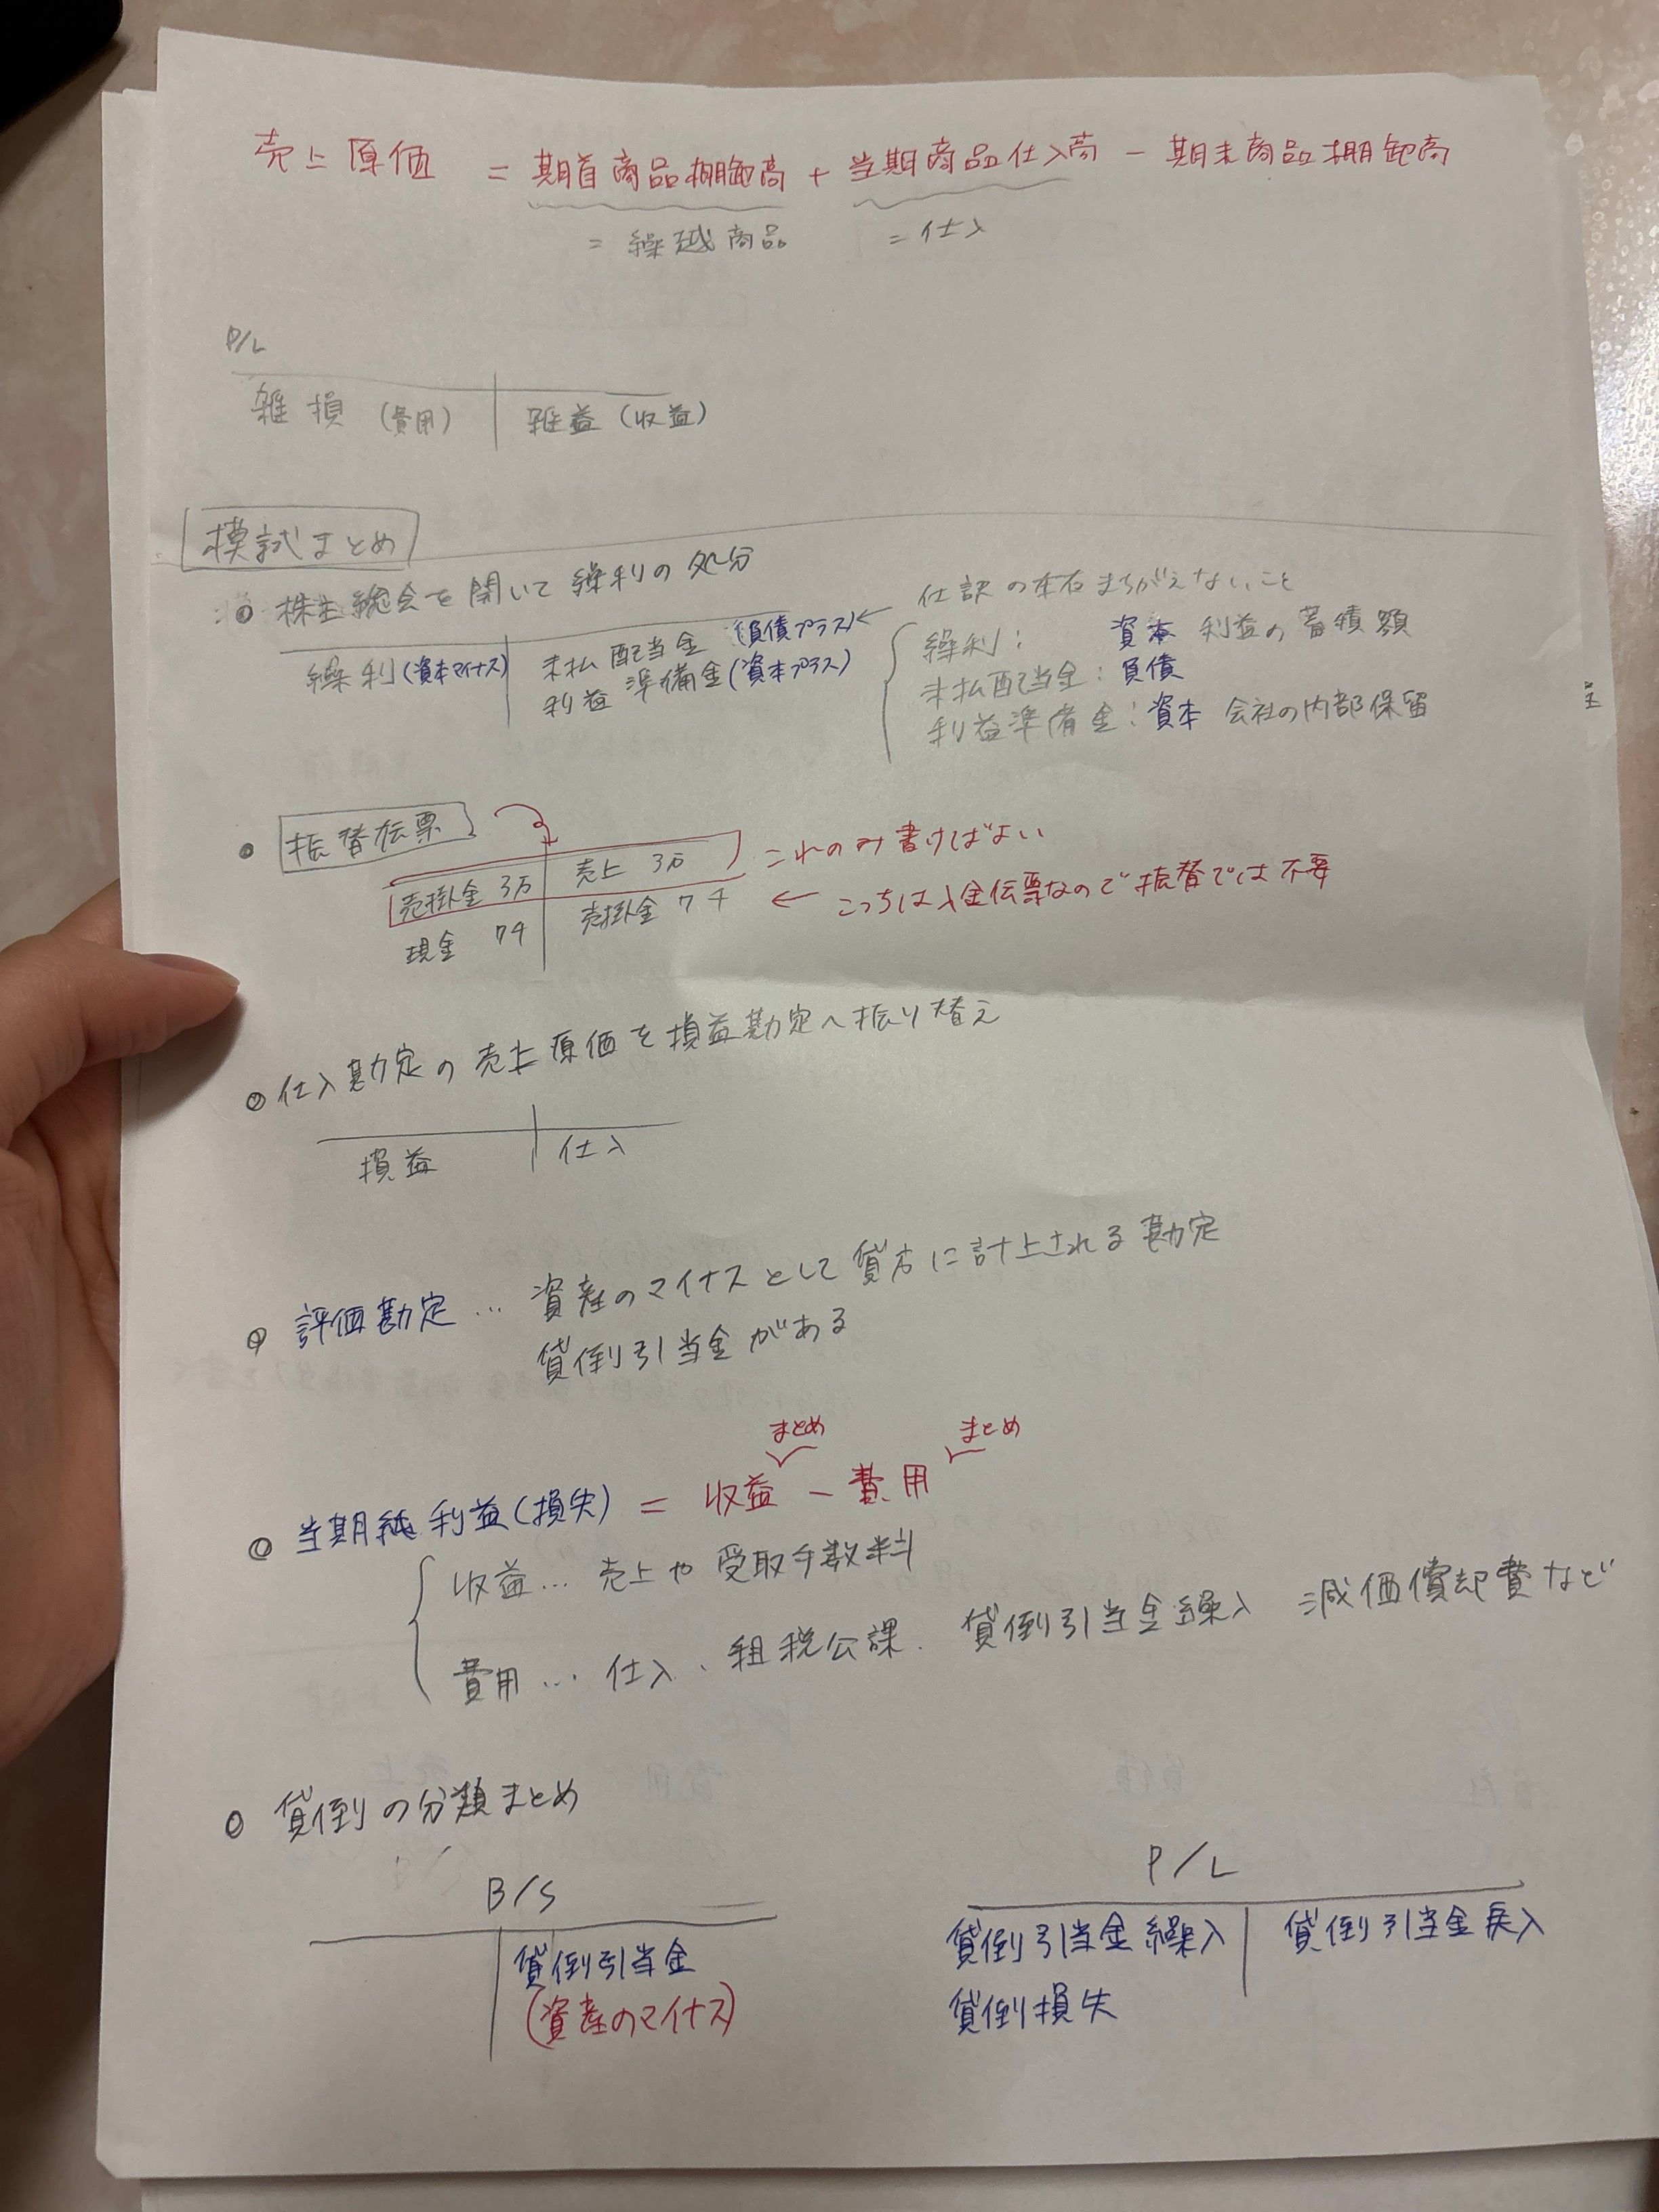 売上原価 = 期首商品棚卸高 + 当期商品仕入高 - 期末商品棚卸高
= 繰越商品 = 仕入
P/L
雑損 (費用) 雑益 (収益)
模試まとめ
株主総会を開いて繰利の処分
仕訳の左右まちがえないこと
繰利 (資本マイナス) 未払配当金 (負債プラス) ←
利益準備金 (資本プラス)
繰利: 資本 利益の蓄積額
未払配当金: 負債
利益準備金: 資本 会社の内部保留
振替伝票
売掛金 3万 売上 3万 これのみ書けばよい
現金 7千 売掛金 7千 ← こっちは入金伝票なので振替では不要
仕入勘定の売上原価を損益勘定へ振り替え
損益 仕入
評価勘定 … 資産のマイナスとして貸方に計上される勘定
貸倒引当金がある
まとめ まとめ
当期純利益(損失) = 収益 - 費用
収益… 売上や受取手数料
費用… 仕入、租税公課、貸倒引当金繰入 減価償却費など
貸倒の分類まとめ
B/S
貸倒引当金
(資産のマイナス)
P/L
貸倒引当金繰入 貸倒引当金戻入
貸倒損失